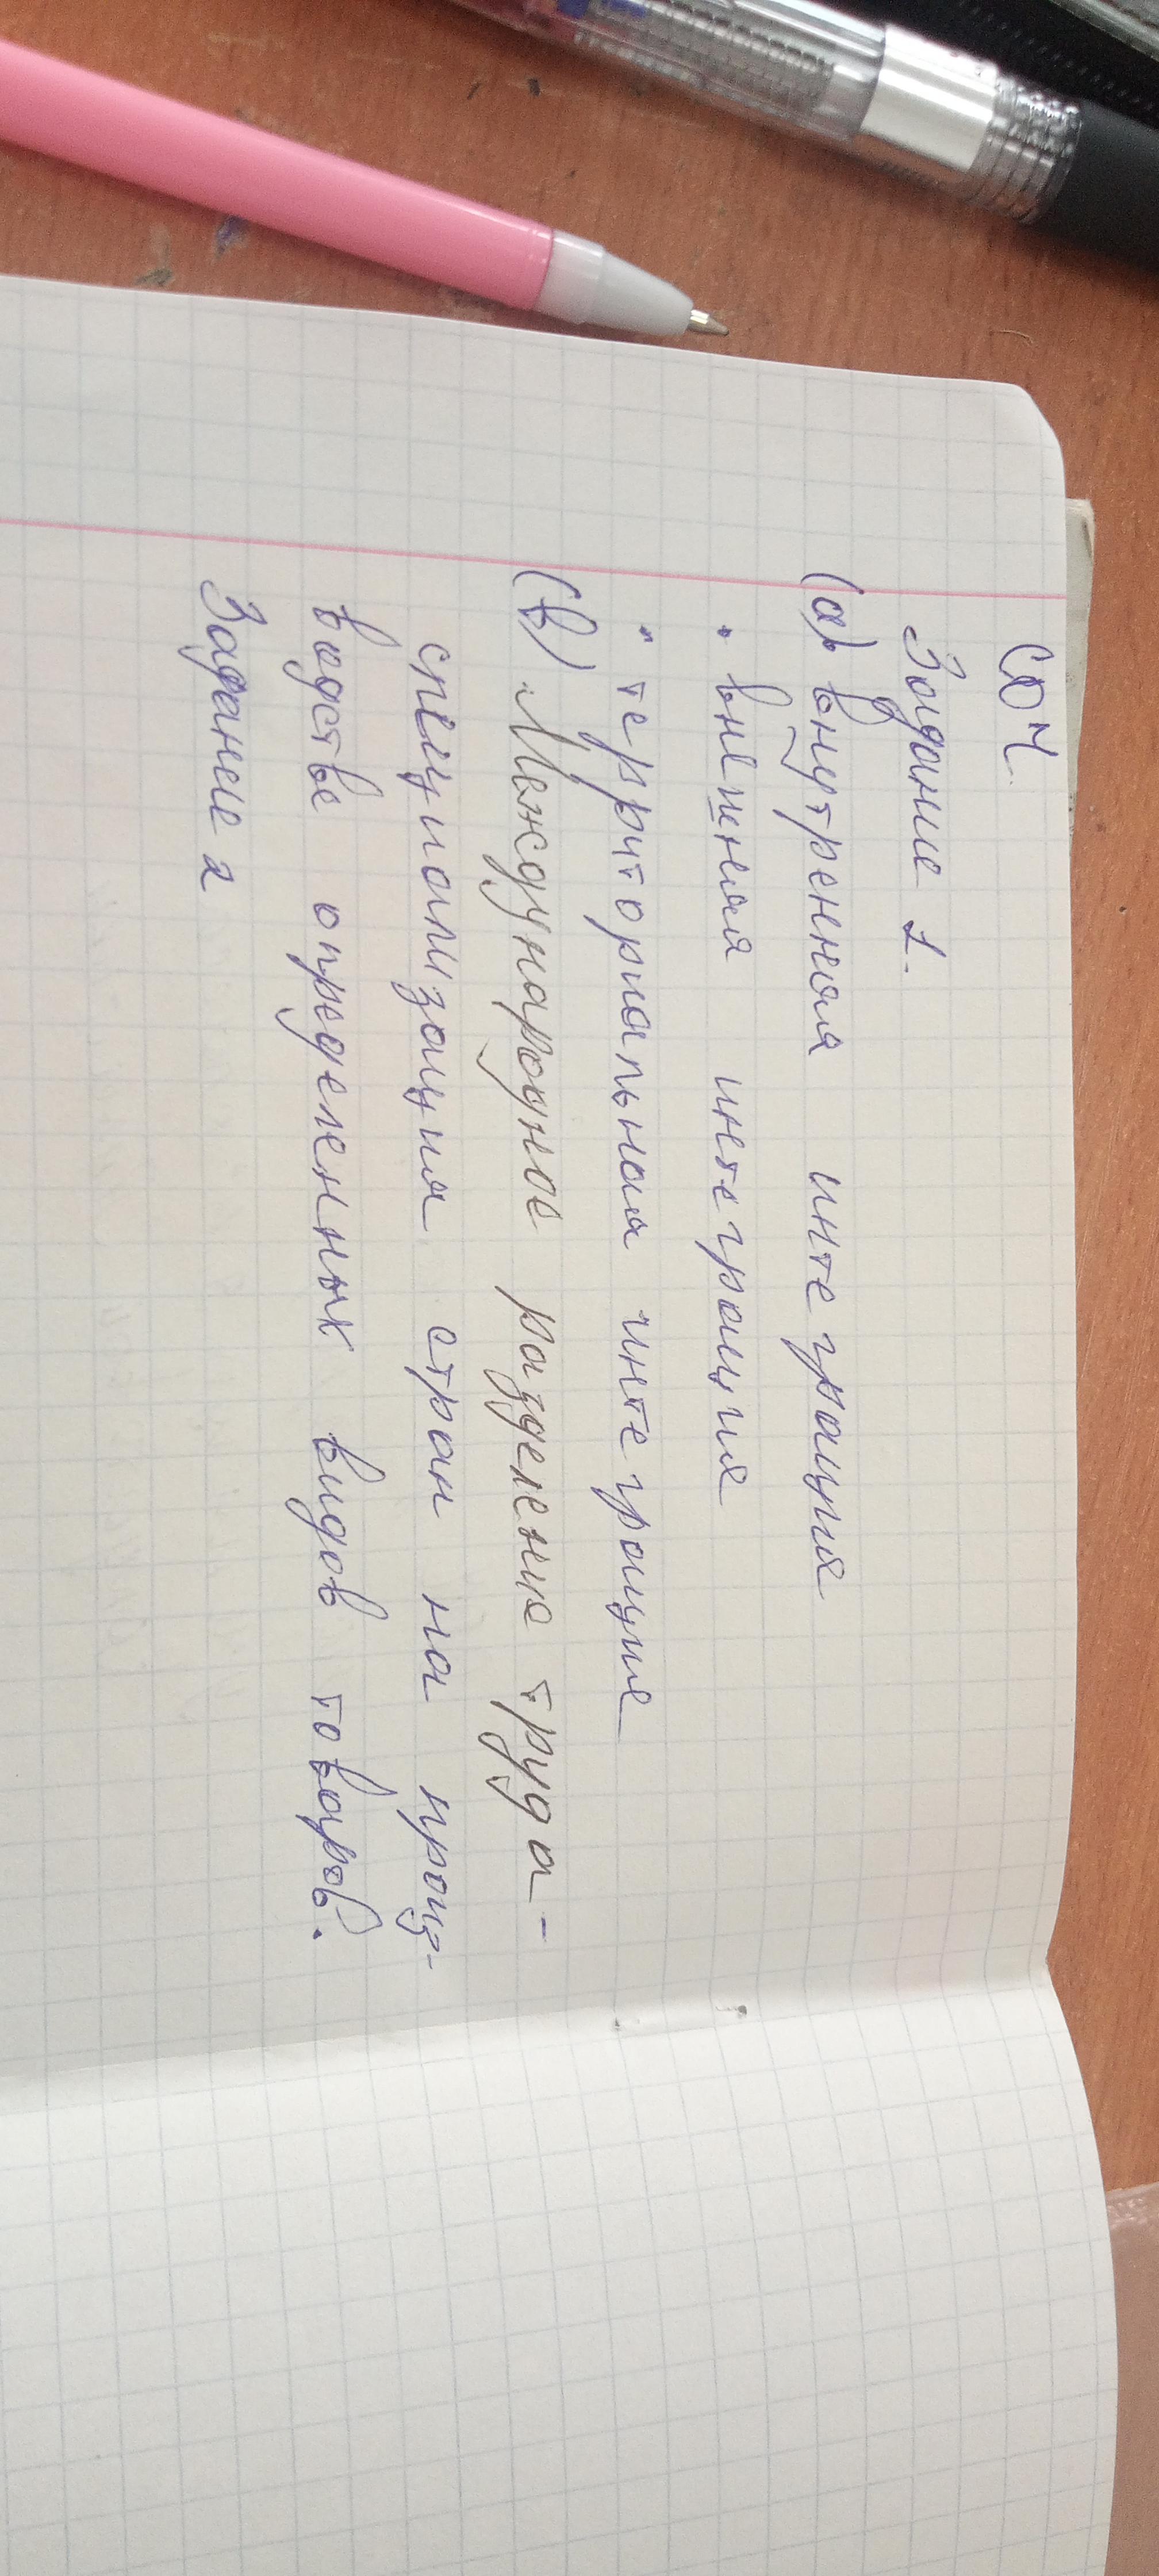 СОЧ.
Задание 1.
(а) внутренная интеграция
• внешняя интеграция
• территориальная интеграция
(b) Международное разделение труда -
специализация стран на произ-
водстве определенных видов товаров.
Задание 2